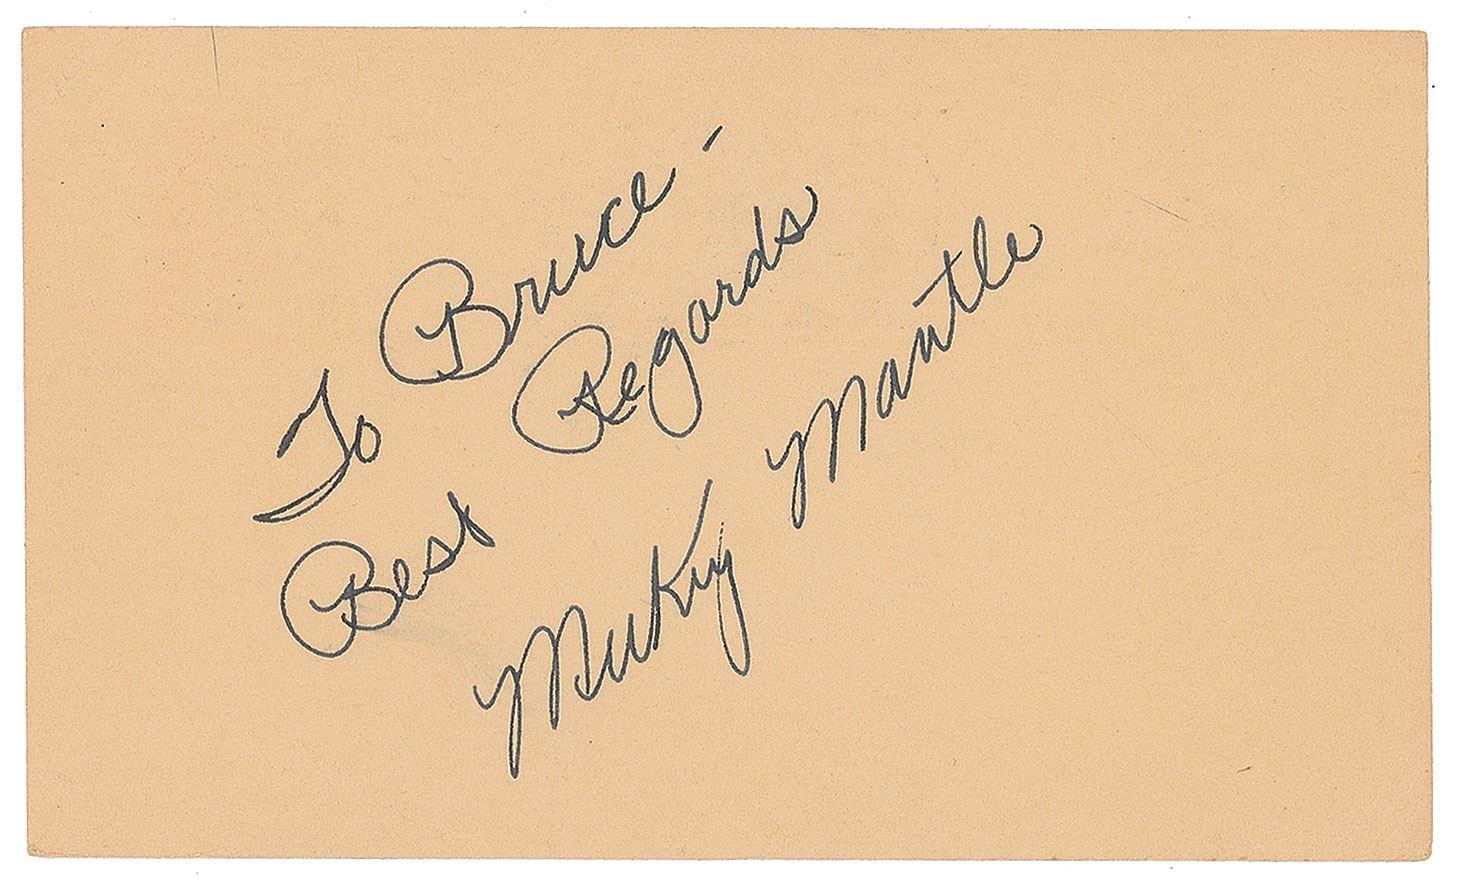 To Bruce -
Best Regards
Mickey Mantle